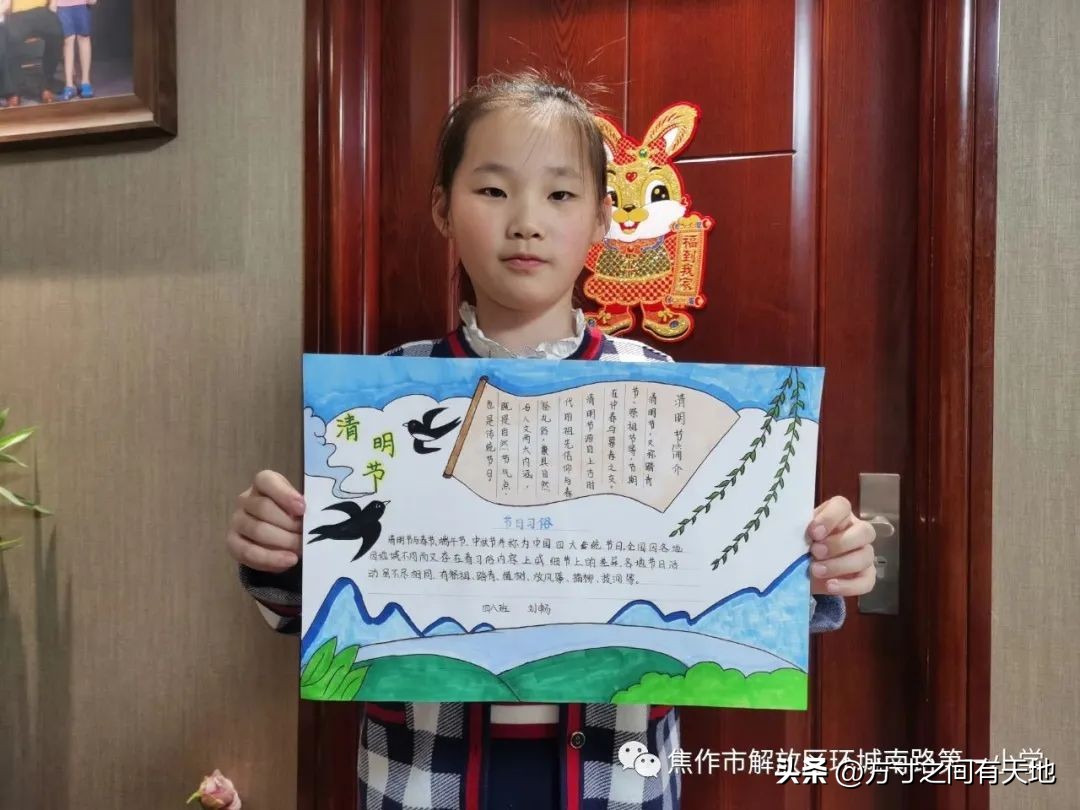 清明节
清明节简介
清明节，又称踏青
节、祭祖节等，节期
在仲春与暮春之交。
清明节源自上古时
代的祖先信仰与春
祭礼俗，兼具自然
与人文两大内涵，
既是自然节气点，
也是传统节日
节日习俗
清明节与春节、端午节、中秋节并称为中国四大传统节日。全国因各地
因地域不同而又存在着习俗内容上或细节上的差异，各地节日活
动虽不尽相同，有祭祖、踏青、植树、放风筝、插柳、拔河等。
四八班 刘畅
福到我家
焦作市解放区环城南路第一小学
头条 @方寸之间有天地